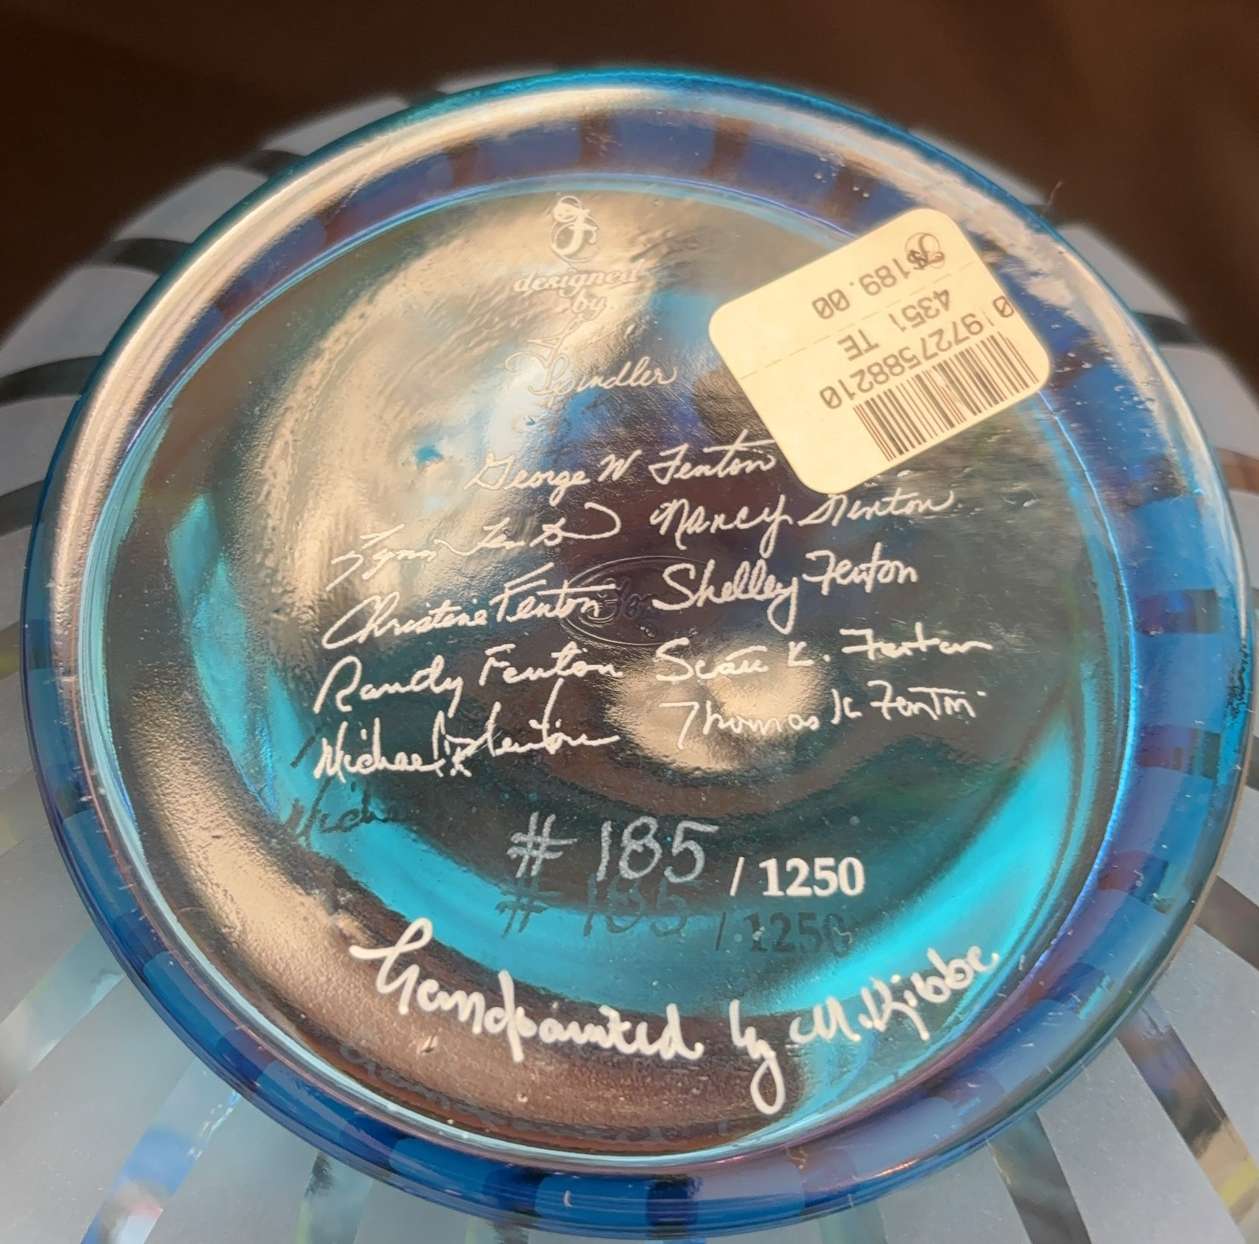 F
designed
by
Spindler
George W Fenton
Lynn Fenton Nancy Fenton
Christine Fenton Shelley Fenton
Randy Fenton Scott K. Fenton
Michael Fenton Thomas K Fenton
# 185 / 1250
Handpainted by M. Kibbe
$189.00
4351 TE
0 97275 88210